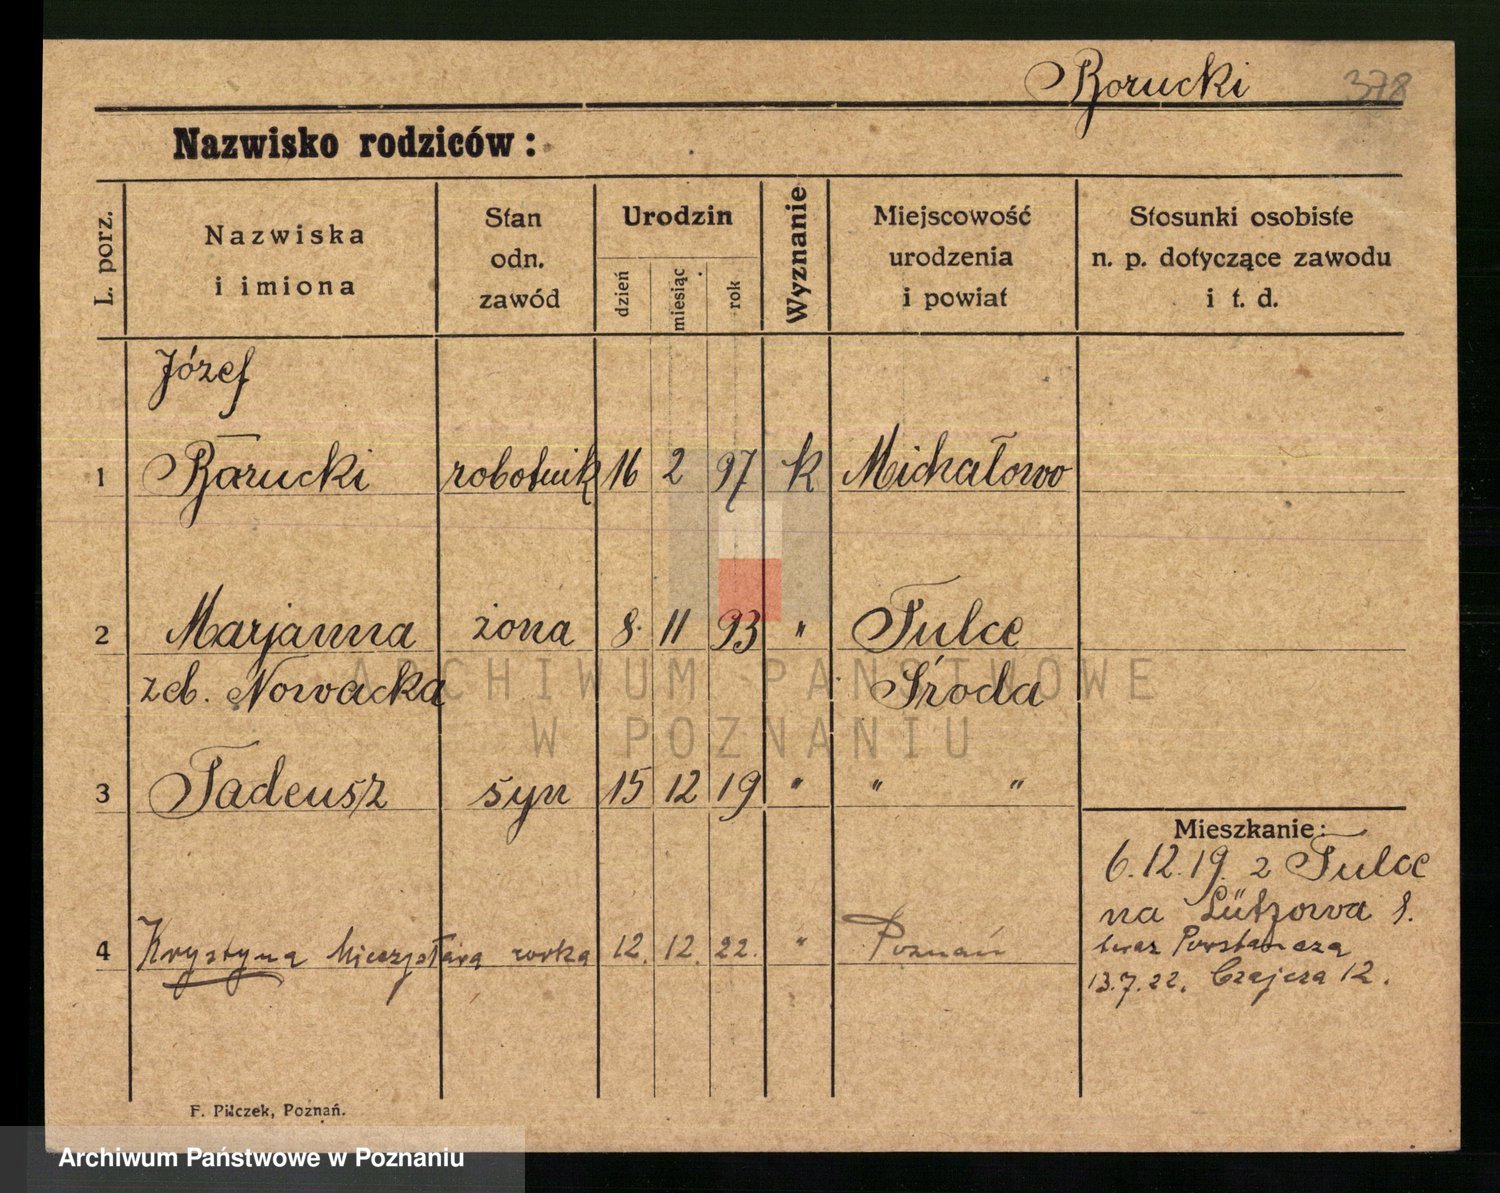 Borucki 378
Nazwisko rodziców:
L. porz.
Nazwiska
i imiona
Stan
odn.
zawód
Urodzin
dzień
miesiąc
rok
Wyznanie
Miejscowość
urodzenia
i powiat
Stosunki osobiste
n. p. dotyczące zawodu
i t. d.
Józef
1 Borucki robotnik 16 2 97 k Michałowo
2 Marjanna żona 8. 11 93 " Tulce
zeb. Nowacka Środa
3 Tadeusz syn 15 12 19 " " "
Mieszkanie:
6.12.19. z Tulce
na Lützowa 8.
teraz Powstańcza
13.7.22. Czajcza 12.
4 Krystyna Mieczysława córka 12. 12. 22. " Poznań
F. Pilczek, Poznań.
ARCHIWUM PAŃSTWOWE
W POZNANIU
Archiwum Państwowe w Poznaniu